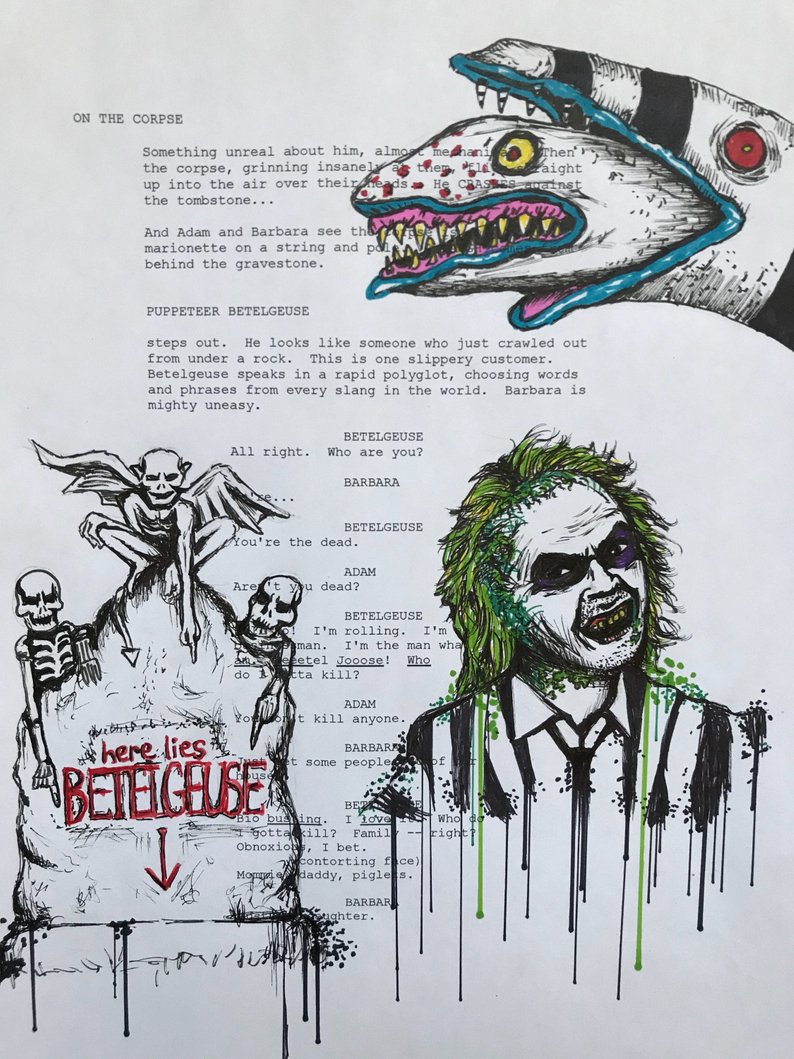 ON THE CORPSE
Something unreal about him, almost Then
the corpse, grinning insanely at them,
up into the air over their heads.. He CRASHES against
the tombstone...
And Adam and Barbara see the
marionette on a string and
behind the gravestone.
PUPPETEER BETELGEUSE
steps out. He looks like someone who just crawled out
from under a rock. This is one slippery customer.
Betelgeuse speaks in a rapid polyglot, choosing words
and phrases from every slang in the world. Barbara is
mighty uneasy.
BETELGEUSE
All right. Who are you?
BARBARA
BETELGEUSE
You're the dead.
ADAM
Aren't you dead?
BETELGEUSE
I'm rolling. I'm
I'm the man
Jooose! Who
do I gotta kill?
ADAM
You don't kill anyone.
BARBARA
Just get some people out of our
house.
BETELGEUSE
Bio busting. I love it. Who do
I gotta kill? Family -- right?
Obnoxious, I bet.
(contorting face)
Mommie, daddy, piglets.
BARBARA
here lies
BETELGEUSE